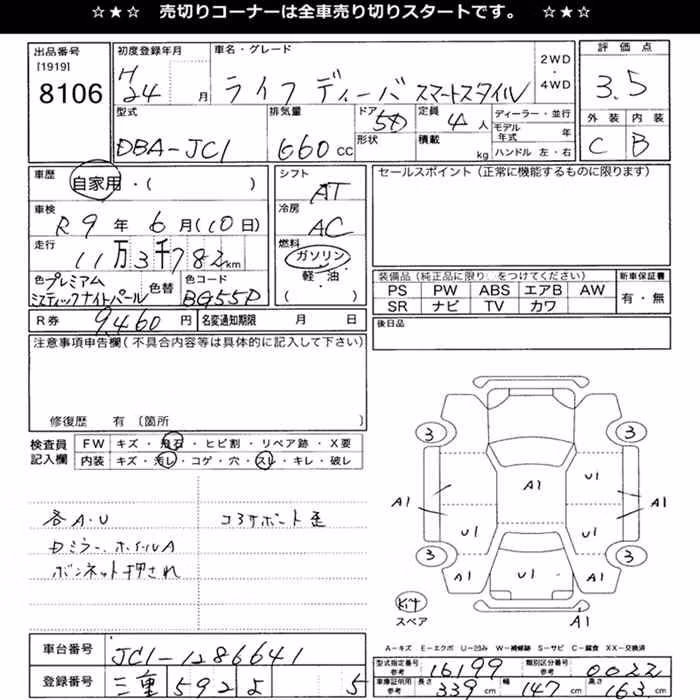 ☆★☆ 売切りコーナーは全車売り切りスタートです。 ☆★☆
出品番号
[1919]
8106
初度登録年月
H24 月
車名・グレード
ライフ ディーバ スマートスタイル
2WD
・
4WD
評価点
3.5
外装 内装
C B
型式
DBA-JC1
排気量
660cc
ドア
5D
形状
定員
4人
積載
kg
ディーラー・並行
モデル年式 年
ハンドル 左・右
車歴
自家用・( )
車検
R9年6月(10日)
走行
11万3千782km
色 プレミアム
ミスティックナイトパール
色替
色コード
BG55P
シフト
AT
冷房
AC
燃料
ガソリン
軽・油
( )
セールスポイント(正常に機能するものに限ります)
装備品(純正品に限り○をつけてください)
PS PW ABS エアB AW
SR ナビ TV カワ
新車保証書
有・無
後日品
R券 9,460円 名変通知期限 月 日
注意事項申告欄(不具合内容等は具体的に記入して下さい)
修復歴 有〔箇所 〕
検査員
記入欄
FW キズ・飛石・ヒビ割・リペア跡・X要
内装 キズ・汚レ・コゲ・穴・スレ・キレ・破レ
各A・U
Dミラー、ホイルA
ボンネット押され
コアサポート歪
3 3
A1 U1 A1 U1 A1
U1 U1
3 3
A1 U1 A1
A1
キット
スペア
A-キズ E-エクボ U-凹み W-補修跡 S-サビ C-腐食 XX-交換済
車台番号 JC1-1286641
登録番号 三重 592 よ 5
型式指定番号
参考
16199
類別区分番号
参考
0022
車庫証明用
参考
長さ 339cm 幅 147cm 高さ 163cm